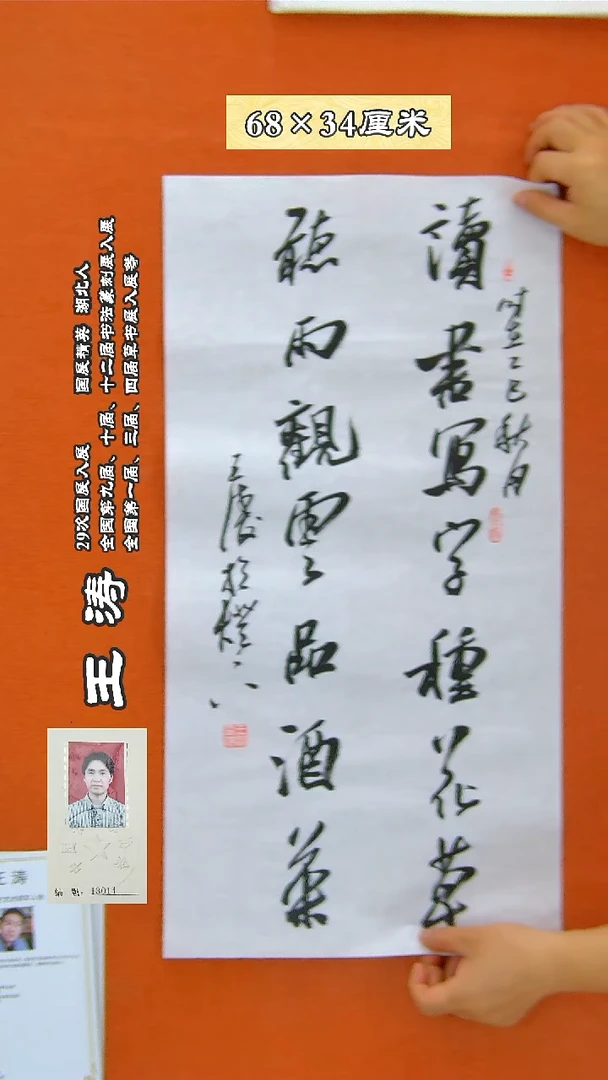 68×34厘米
讀書寫字種花草
聽雨觀雲品酒茶
时在乙巳秋月
王涛
29次国展入展 国展精英 湖北人
全国第九届、十届、十二届书法篆刻展入展
全国第一届、三届、四届草书展入展等
18014
王涛